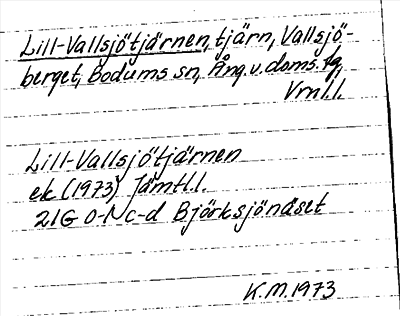 Lill-Vallsjötjärnen, tjärn, Vallsjö-
berget, Bodums sn, Ång. v. doms. tg,
Vrnl.l.
Lill-Vallsjötjärnen
ek (1973) Jämtl.l.
21G 0-N c-d Björksjönäset
K.M. 1973